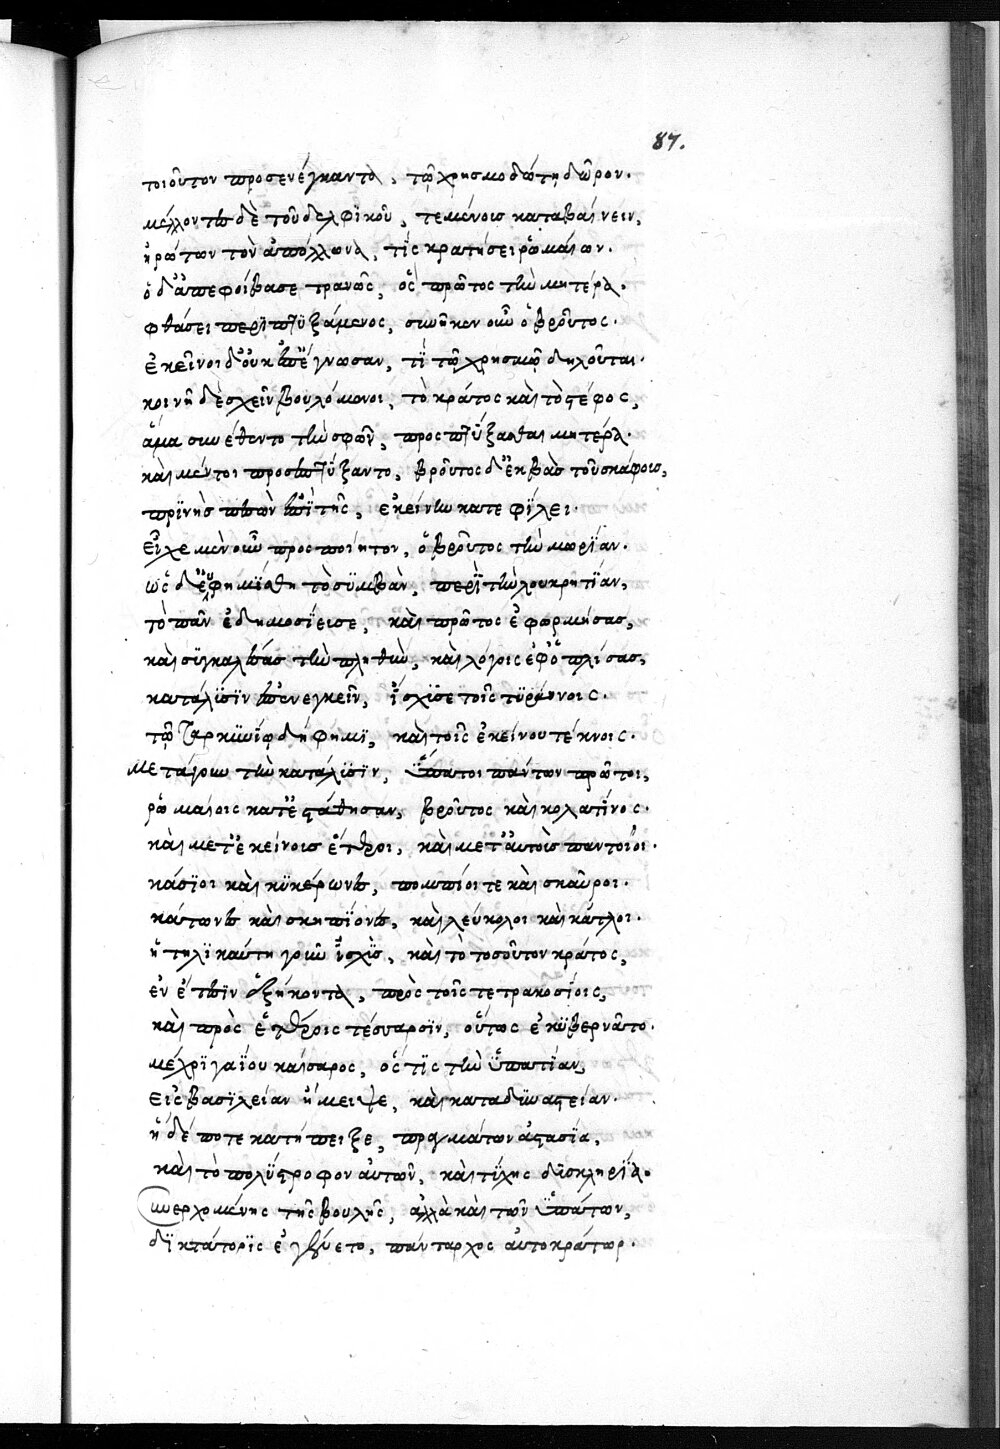 87.
τοιοῦτον προσενέγκαντα, τῷ χρησμοδότῃ δῶρον.
μέλλοντες δὲ τοῦ δελφικοῦ, τεμένους καταβαίνειν,
ἠρώτων τὸν ἀπόλλωνα, τίς κρατήσει ῥωμαίων.
ὁ δ' ἀπεφοίβασε τρανῶς, ὃς πρῶτος τὴν μητέρα.
φθάσει περιπτυξάμενος, συνῆκεν οὖν ὁ βροῦτος.
ἐκεῖνοι δ' οὐκ ἐπέγνωσαν, τί τῷ χρησμῷ δηλοῦται.
κοινῇ δὲ σχεῖν βουλόμενοι, τὸ κράτος καὶ τὸ στέφος,
ἅμα συνέθεντο τὴν σφῶν, προσπτύξασθαι μητέρα.
καὶ μέντοι προσεπτύξαντο, βροῦτος δ' ἐκβὰς τοῦ σκάφους,
πρηνὴς πεσὼν ἐπὶ τῆς, ἐκείνην κατεφίλει.
εἶχε μὲν οὖν προσποίητον, ὁ βροῦτος τὴν μωρίαν.
ὡς δ' ἐφημίσθη τὸ συμβὰν, περὶ τὴν λουκρητίαν,
τὸ πᾶν ἐδημοσίευσε, καὶ πρῶτος ἐφορμήσας,
καὶ συγκαλέσας τὴν πληθὺν, καὶ λόγοις ἐφοπλίσας,
κατάλυσιν ἐπενεγκεῖν, ἴσχυσε τοῖς τυράννοις.
τῷ Ταρκυνίῳ δὴ φημὶ, καὶ τοῖς ἐκείνου τέκνοις.
Μετὰ γοῦν τὴν κατάλυσιν, ὕπατοι πάντων πρῶτοι,
ῥωμαίοις κατεστάθησαν, βροῦτος καὶ κολατῖνος.
καὶ μετ' ἐκείνοις ἕτεροι, καὶ μετ' αὐτοὺς παντοῖοι.
κάσιοι καὶ κικέρωνες, πομπίοι τε καὶ σκαῦροι.
κάτωνες καὶ σκηπίονες, καὶ λεύκολοι καὶ κάτλοι.
ἡ τηλικαύτη γοῦν ἰσχὺς, καὶ τὸ τοσοῦτον κράτος,
ἐν ἔτεσιν ἑξήκοντα, πρὸς τοῖς τετρακοσίοις,
καὶ πρὸς ἑτέροις τέσσαρσιν, οὕτως ἐκυβερνᾶτο.
μέχρι γαΐου καίσαρος, ὅστις τὴν ὑπατίαν,
εἰς βασιλείαν ἤμειψε, καὶ καταδυναστείαν.
ἡ δέ ποτε κατήπειξε, πραγμάτων ἀστασία,
καὶ τὸ πολύστροφον αὐτῶν, καὶ τύχης δυσκληρία.
συνερχομένης τῆς βουλῆς, ἀλλὰ καὶ τῶν ὑπάτων,
δικτάτορις ἐγένετο, πάνταρχος αὐτοκράτωρ.